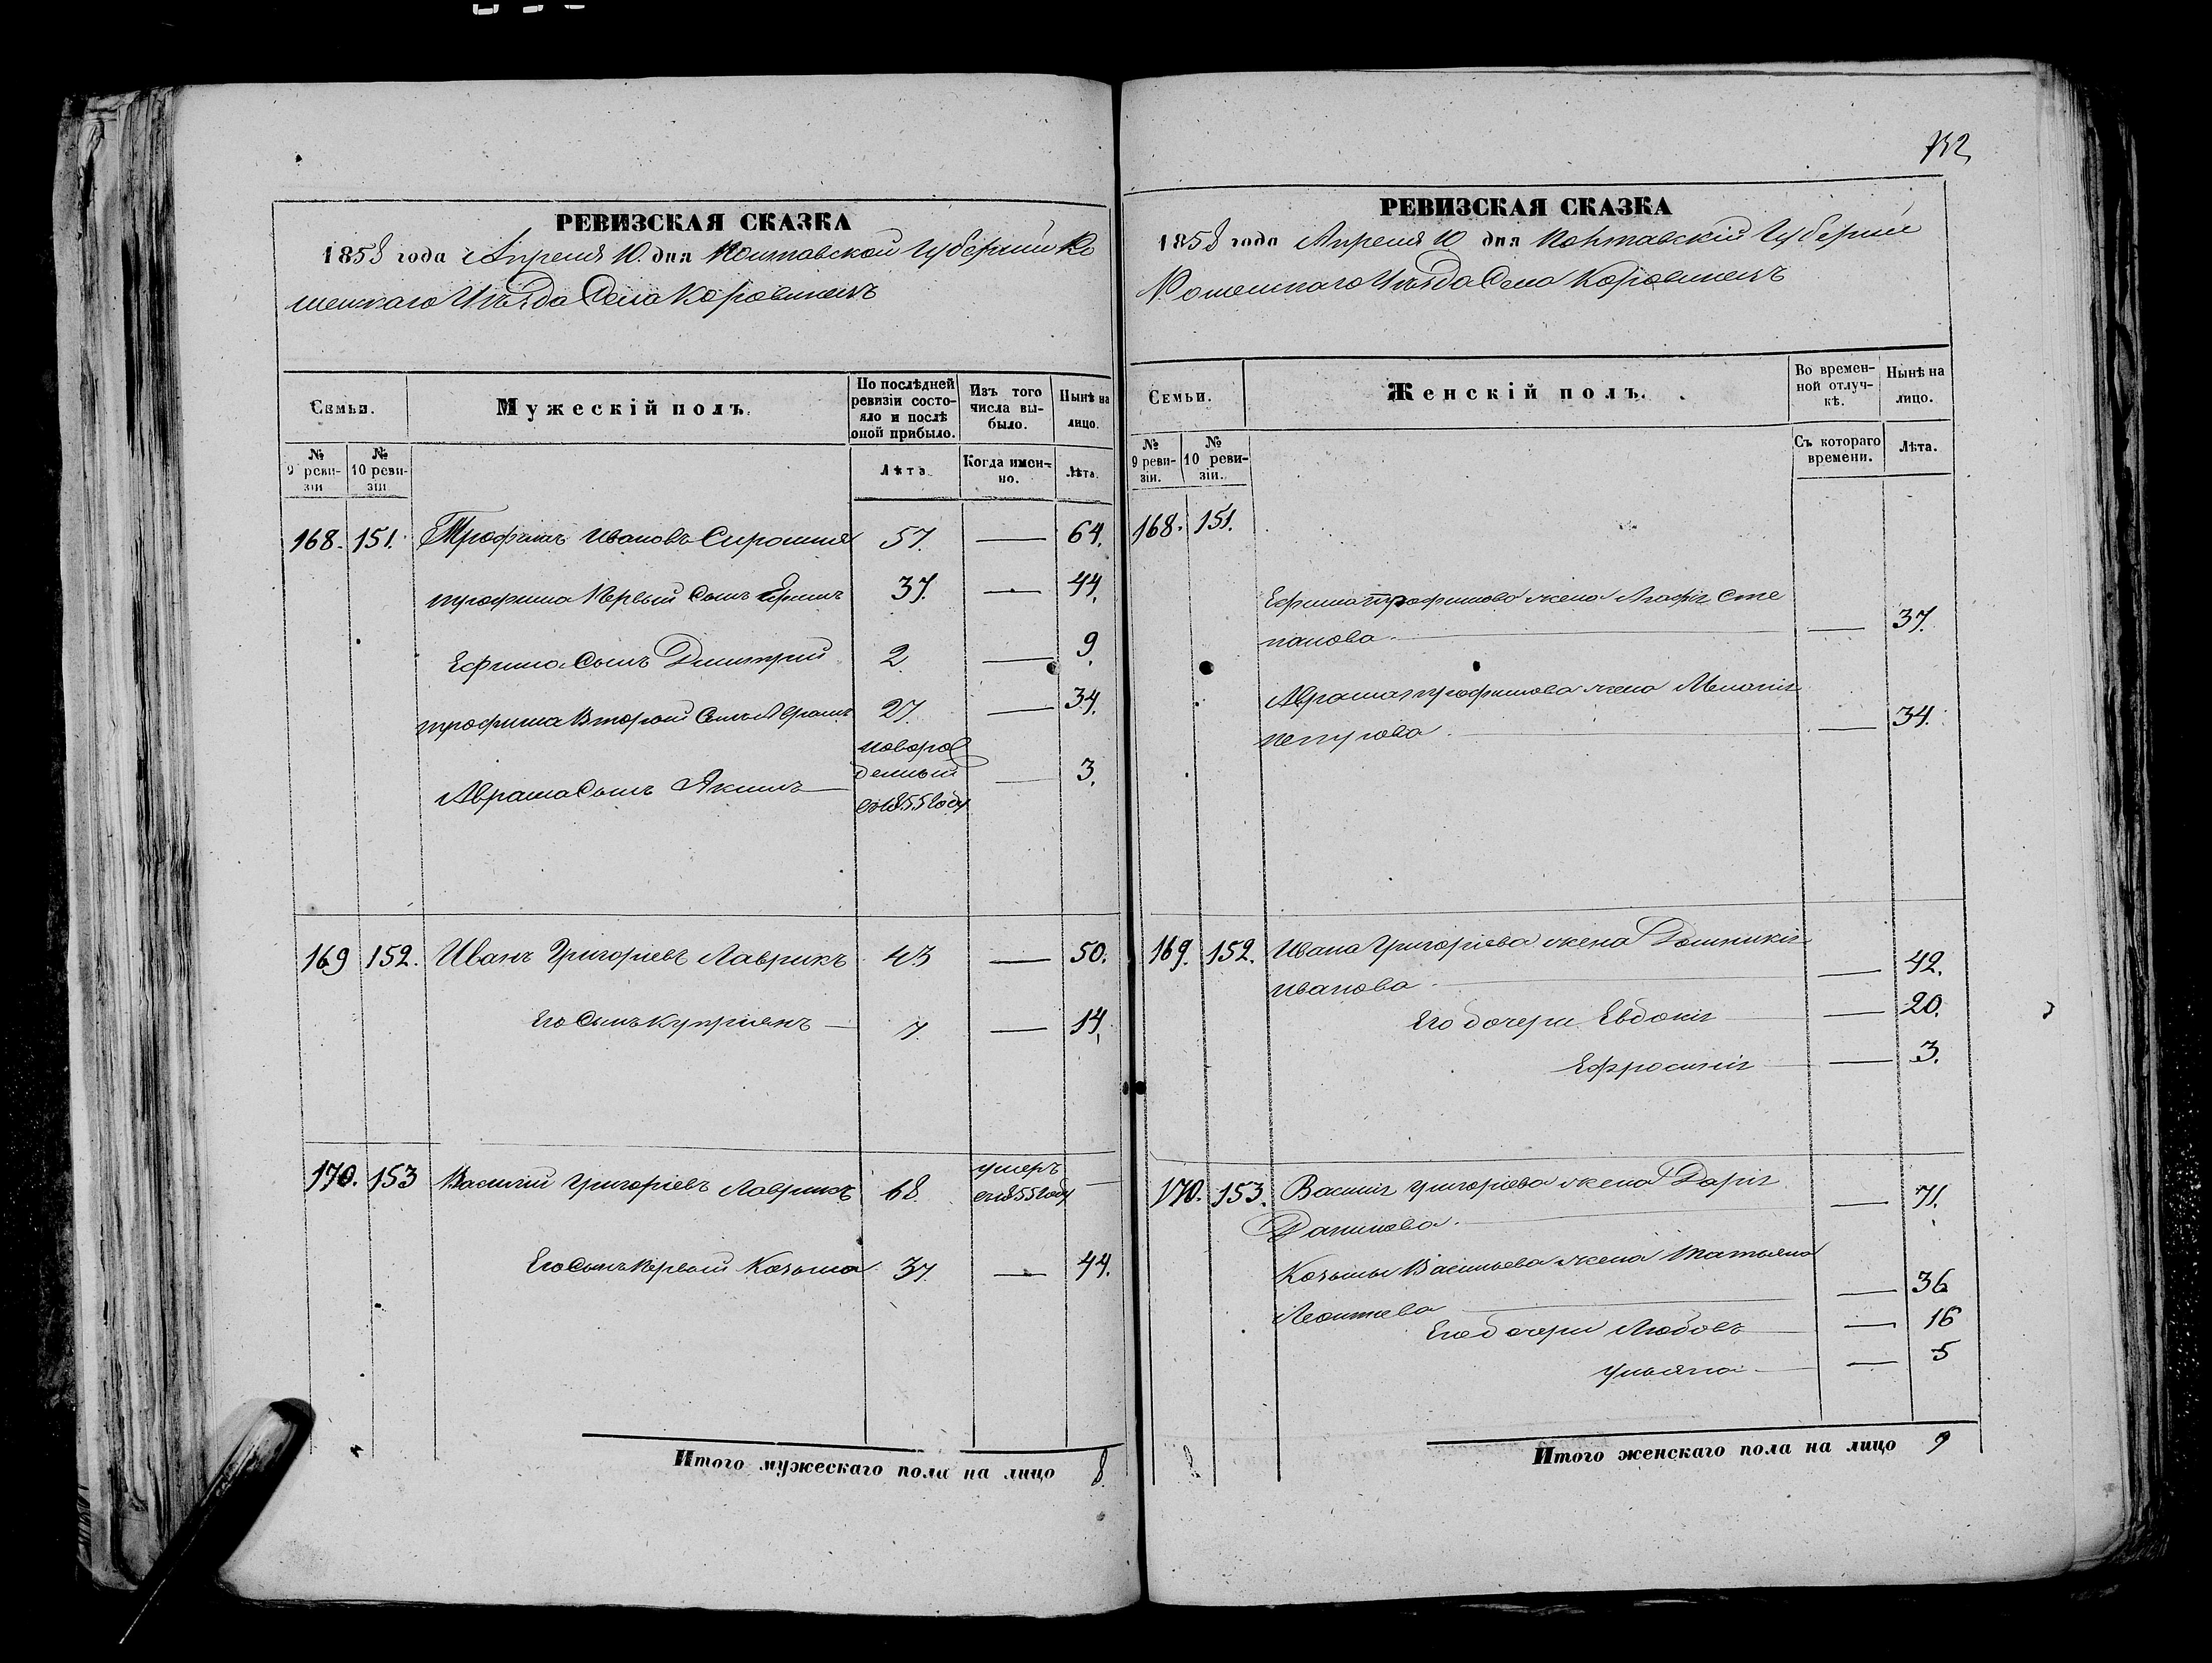 РЕВИЗСКАЯ СКАЗКА
1858 года Апреля 10 дня Полтавской Губернии Ро
менскаго Уѣзда Села Коровинецъ
Семьи.
Мужескій полъ.
По послѣдней ревизіи состояло и послѣ оной прибыло.
Изъ того числа выбыло.
Нынѣ на лицо.
№ 9 ревизіи
№ 10 ревизіи
Лѣта
Когда именно.
Лѣта.
168. 151. Трофимъ Ивановъ Сирошт 57. — 64.
трофима Первый Сынъ Ефимъ 37. — 44.
Ефима Сынъ Дмитрий 2 — 9.
трофима Второй Сынъ Аврамъ 27. — 34.
новорож
денный
Аврама Сынъ Якимъ — 3.
въ 1855 году
169 152. Иванъ Григорiевъ Лаврикъ 43 — 50.
Его Сынъ Куприянъ — 7. — 14.
170. 153 Василий Григорiевъ Лаврикъ 68. умеръ
въ 1855 году —
Его Сынъ Первый Козьма 37. — 44.
Итого мужескаго пола на лицо 8.
752
РЕВИЗСКАЯ СКАЗКА
1858 года Апреля 10 дня Полтавскiй Губернии
Роменскаго Уѣзда Села Коровинецъ
Семьи.
Женскій полъ.
Во временной отлучкѣ.
Нынѣ на лицо.
№ 9 ревизіи.
№ 10 ревизіи.
Съ котораго времени.
Лѣта.
168. 151.
Ефима трофимова жена Агафiя Сте
панова — 37.
Аврама трофимова жена Меланiя
петрова — 34.
169. 152. Ивана Григорiева жена Домникiя
иванова — 42.
Его дочери Евдокiя — 20.
Ефросинiя — 3.
170. 153. Василiя григорiева жена Дарiя
Данилова — 71.
Козьмы Васильева жена татьяна
Леонтева — 36
Его дочери Любовь — 16
ульяна — 5
Итого женскаго пола на лицо 9